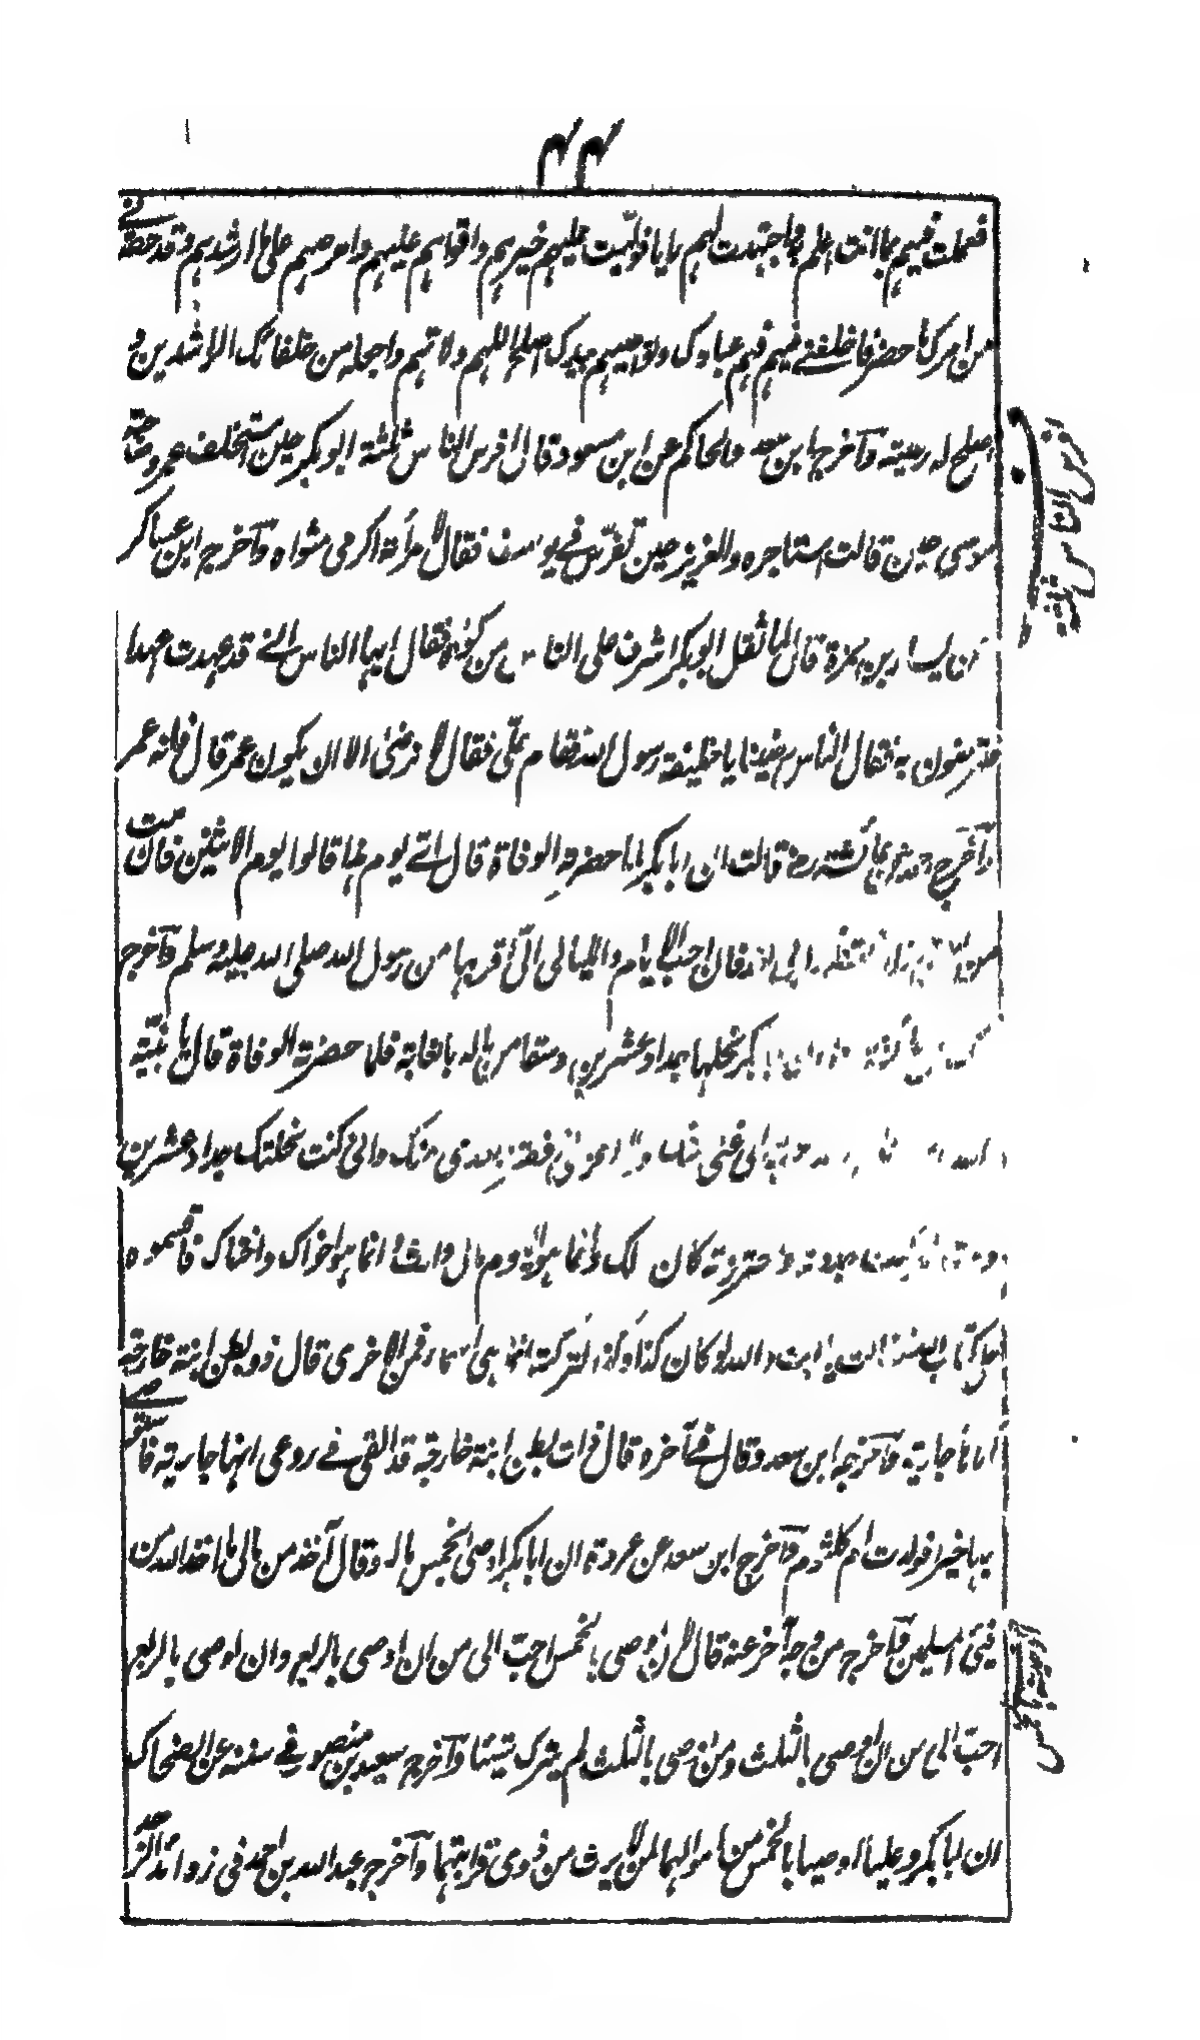 ۴۴
فعملت فیهم بما انت اعلم به واجتهدت لهم رایا فولیت علیهم خیرهم واقواهم علیهم واحرصهم علی ما ارشدهم وقد حضرنی
من امرک ما حضر فاخلفنی فیهم فهم عبادک ونواصیهم بیدک اصلح اللهم ولاتهم واجعله من خلفائک الراشدین و
اصلح له رعیته وآخرج ابن سعد والحاکم عن ابن مسعود قال افرس الناس ثلثة ابو بکر حین استخلف عمر وصاحبة
موسی حین قالت استاجره والعزیز حین تفرس فی یوسف فقال لامرأته اکرمی مثواه وآخرج ابن عساکر
عن یسار بن حمزة قال لما ثقل ابو بکر اشرف علی الناس من کوة فقال ایها الناس انی قد عهدت عهدا
افترضون به فقال الناس رضینا یا خلیفة رسول الله فقام علی فقال لا نرضی الا ان یکون عمر قال فانه عمر
وآخرج احمد عن عائشة رض قالت ان ابا بکر لما حضرته الوفاة قال ای یوم هذا قالوا یوم الاثنین قال فان مت
من فلا تنتظروا بی فان احب الایام واللیالی الی اقربها من رسول الله صلی الله علیه وسلم وآخرج
بکر نحلها جداد عشرین وسقا من ماله بالغابة فلما حضرته الوفاة قال یا بنیة
والله الی غنی منک ولا اعز علی فقدا بعدی منک وانی کنت نحلتک جداد عشرین
واحترزته کان لک وانما هو الیوم مال وارث وانما هو اخواک واختاک فاقسموه
علی کتاب الله فقالت یا ابت والله لو کان کذا وکذا لترکته انما هی اسماء فمن الاخری قال ذو بطن ابنة خارجة
اراها جاریة وآخرجه ابن سعد وقال فی آخره قال ذات بطن ابنة خارجة قد القی فی روعی انها جاریة فاستوصی
بها خیرا فولدت ام کلثوم وآخرج ابن سعد عن عروة ان ابا بکر اوصی بخمس ماله وقال آخذ من مالی ما اخذ الله من
فیئ المسلمین وآخرج من وجه آخر عنه قال لان اوصی بالخمس احب الی من ان اوصی بالربع وان اوصی بالربع
احب الی من ان اوصی بالثلث ومن اوصی بالثلث لم یترک شیئا وآخرج سعید بن منصور فی سننه عن الضحاک
ان ابا بکر وعلیا اوصیا بالخمس من اموالهما لمن لا یرث من ذوی قرابتهما وآخرج عبد الله بن احمد فی زوائد الزهد
افرس الناس ثلثة